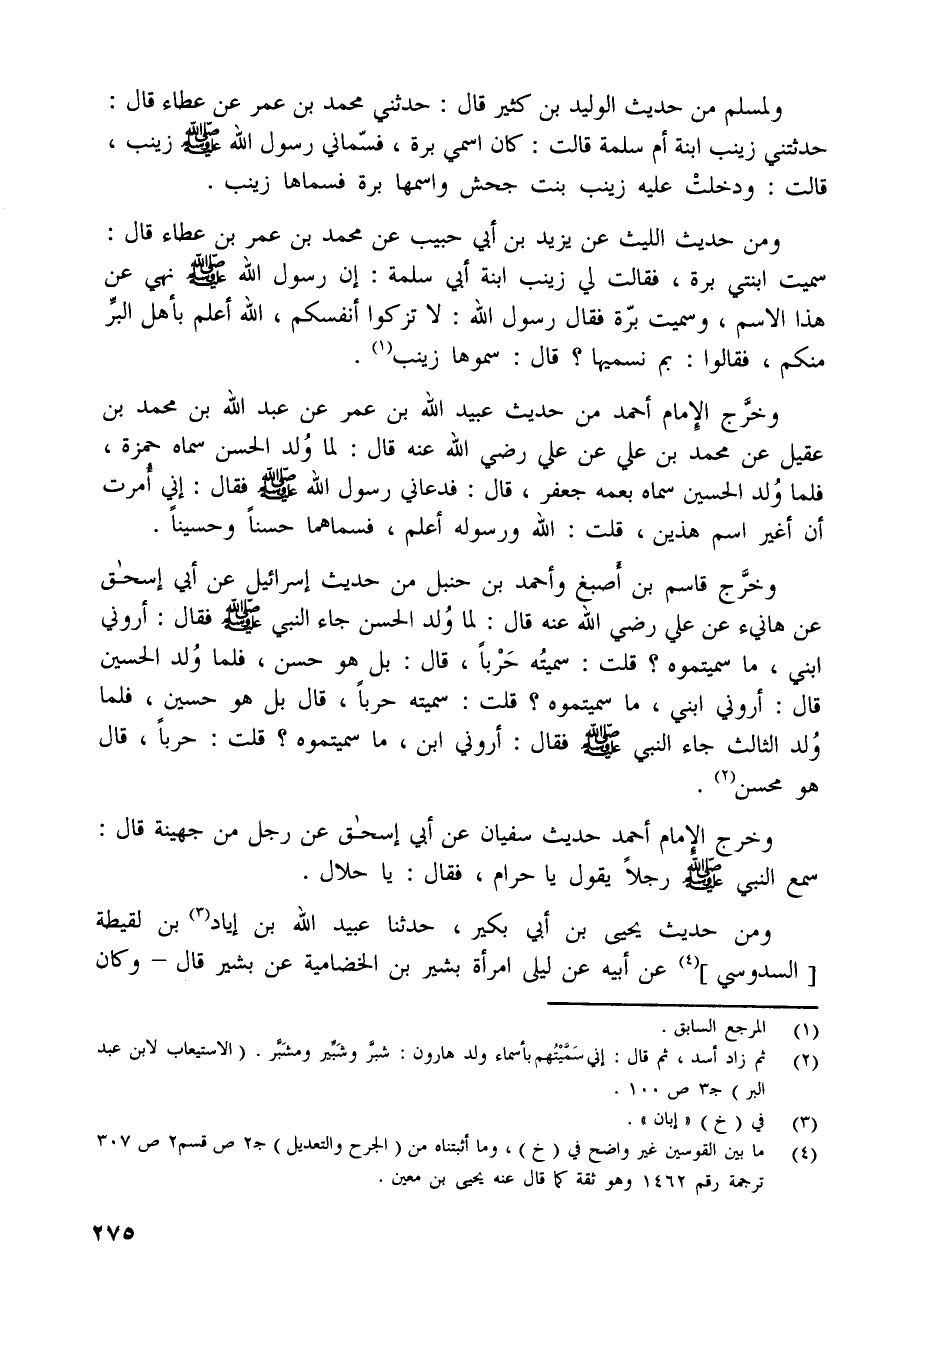 ولمسلم من حديث الوليد بن كثير قال : حدثني محمد بن عمر عن عطاء قال :
حدثتني زينب ابنة أم سلمة قالت : كان اسمي برة ، فسمّاني رسول الله ﷺ زينب ،
قالت : ودخلتْ عليه زينب بنت جحش واسمها برة فسماها زينب .
ومن حديث الليث عن يزيد بن أبي حبيب عن محمد بن عمر بن عطاء قال :
سميت ابنتي برة ، فقالت لي زينب ابنة أبي سلمة : إن رسول الله ﷺ نهي عن
هذا الاسم ، وسميت برّة فقال رسول الله : لا تزكوا أنفسكم ، الله أعلم بأهل البرِّ
منكم ، فقالوا : بم نسميها ؟ قال : سموها زينب(١) .
وخرَّج الإمام أحمد من حديث عبيد الله بن عمر عن عبد الله بن محمد بن
عقيل عن محمد بن علي عن علي رضي الله عنه قال : لما وُلد الحسن سماه حمزة ،
فلما وُلد الحسين سماه بعمه جعفر ، قال : فدعاني رسول الله ﷺ فقال : إني أُمرت
أن أغير اسم هذين ، قلت : الله ورسوله أعلم ، فسماهما حسناً وحسيناً .
وخرَّج قاسم بن أَصبغ وأحمد بن حنبل من حديث إسرائيل عن أبي إسحٰق
عن هانيء عن علي رضي الله عنه قال : لما وُلد الحسن جاء النبي ﷺ فقال : أروني
ابني ، ما سميتموه ؟ قلت : سميتُه حَرْباً ، قال : بل هو حسن ، فلما وُلد الحسين
قال : أروني ابني ، ما سميتموه ؟ قلت : سميته حرباً ، قال بل هو حسين ، فلما
وُلد الثالث جاء النبي ﷺ فقال : أروني ابن ، ما سميتموه ؟ قلت : حرباً ، قال
هو محسن(٢) .
وخرج الإمام أحمد حديث سفيان عن أبي إسحٰق عن رجل من جهينة قال :
سمع النبي ﷺ رجلاً يقول يا حرام ، فقال : يا حلال .
ومن حديث يحيى بن أبي بكير ، حدثنا عبيد الله بن إياد(٣) بن لقيطة
[ السدوسي ](٤) عن أبيه عن ليلى امرأة بشير بن الخضامية عن بشير قال – وكان
(١) المرجع السابق .
(٢) ثم زاد أسد ، ثم قال : إني سَمَّيْتُهم بأسماء ولد هارون : شبَّر وشَبِّير ومشَبَّر . ( الاستيعاب لابن عبد
البر ) جـ٣ ص ١٠٠ .
(٣) في ( خ ) « إبان » .
(٤) ما بين القوسين غير واضح في ( خ ) ، وما أثبتناه من ( الجرح والتعديل ) جـ٢ ص قسم٢ ص ٣٠٧
ترجمة رقم ١٤٦٢ وهو ثقة كما قال عنه يحيى بن معين .
٢٧٥